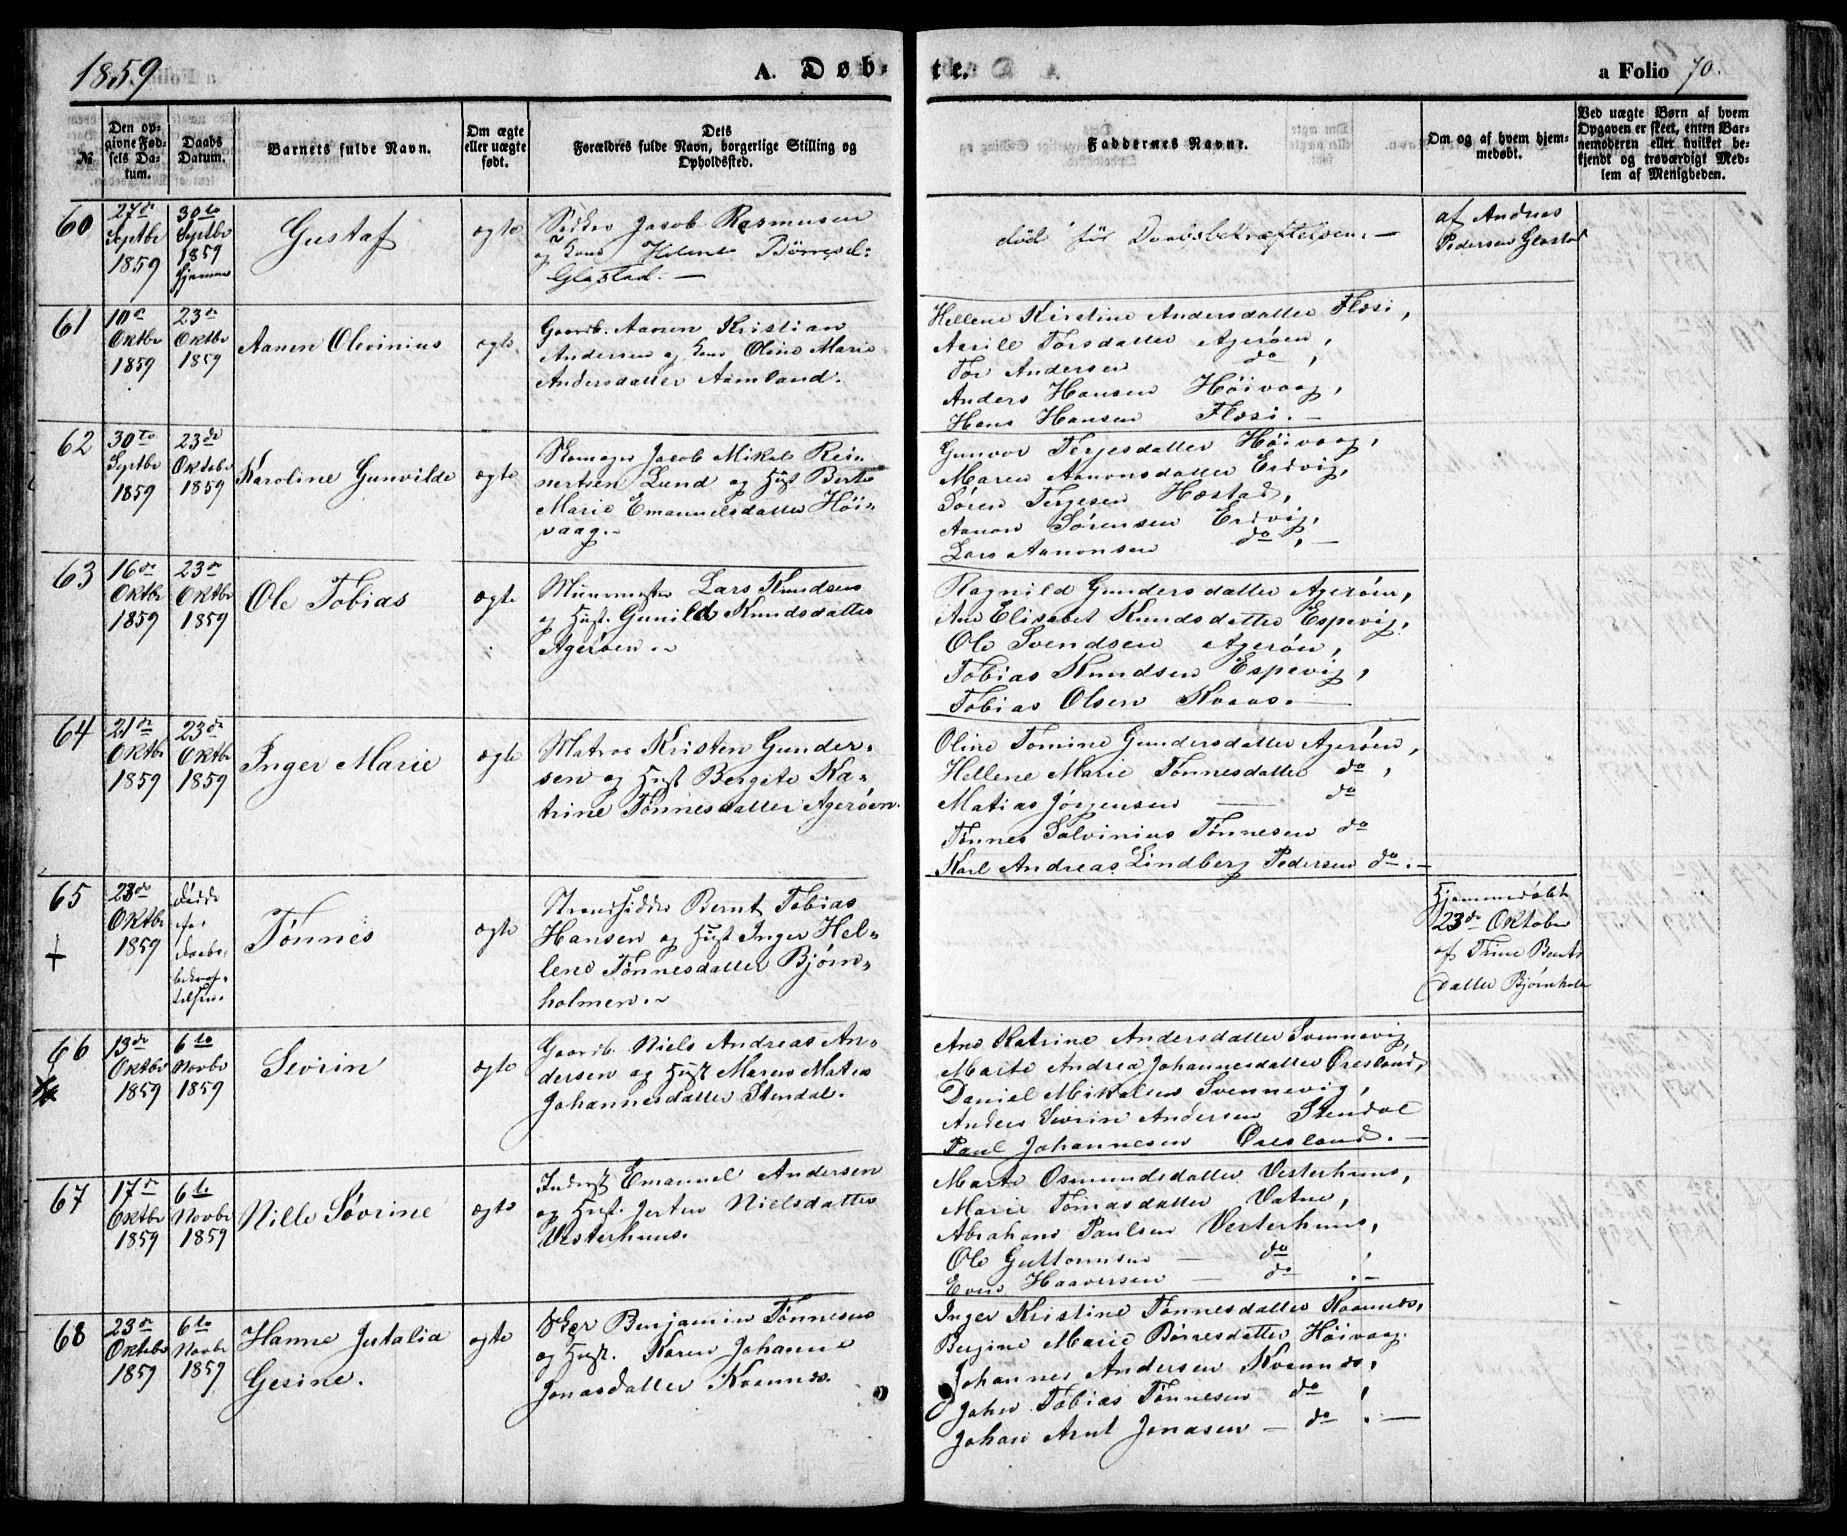 1859
A. Døb-
te.
a Folio 70.
№
Den op-
givne Fød-
sels Da-
tum.
Daabs
Datum.
Barnets fulde Navn.
Om ægte
eller uægte
født.
Dets
Forældres fulde Navn, borgerlige Stilling og
Opholdssted.
Faddernes Navne.
Om og af hvem hjem-
medøbt.
Ved uægte Børn af hvem
Opgaven er skeet, enten Bar-
nemoderen eller hvilket be-
kjendt og troværdigt Med-
lem af Menigheden.
60
27de
Septbr
1859
30te
Septbr
1859
hjemme
Gustaf
ægte
Jacob Rasmusen
og Kone Helene
Glastad. —
død før Daabsbekræftelsen. —
af Andreas
Pedersen Glastad
61
10de
Oktbr
1859
23de
Oktbr
1859
Aanen Olevinius
ægte
Gaardb. Aanen Kristian
Andersen og Kone Oline Marie
Andersdatter Aamland.
Hellene Kirstine Andersdatter Flæsi,
Aarille Torsdatter Agerøen,
Tor Andersen do,
Anders Hansen Höivaag,
Hans Hansen Flæsi. —
62
30te
Septbr
1859
23de
Oktobr
1859
Karoline Gunvilde
ægte
Skomager Jacob Mikal Rei-
nertsen Lund og Hust Berte
Marie Emanuelsdatter Höi-
vaag. -
Gunvor Terjesdatter Höivaag,
Maren Aanonsdatter Erdvig,
Søren Terjesen Hæstad,
Aanon Sørensen Erdvig,
Lars Aanonsen do, -
63
16de
Oktbr
1859
23de
Oktbr
1859
Ole Tobias
ægte
Muurmester Lars Knudsen
og Hust. Gunild Knudsdatter
Agerøen.
Ragnild Gundersdatter Agerøen,
Ane Elisabet Knudsdatter Espevig,
Ole Svendsen Agerøen,
Tobias Knudsen Espevig,
Tobias Olsen Kaas. —
64
21de
Oktbr
1859
23de
Oktbr
1859
Inger Marie
ægte
Matros Kristen Gunder-
sen og Hust Bergite Ka-
trine Tønnesdatter Agerøen.
Oline Tomine Gundersdatter Agerøen,
Hellene Marie Tønnesdatter do,
Matias Jørgensen — do
Tønnes Salvinius Tønnesen do
Karl Andreas Lindberg Pedersen do. —
65
+
23de
Oktbr
1859
døde
før
Daabs-
bekræf-
telsen.
Tønnes
ægte
Strandsidder Bernt Tobias
Hansen og Hust Inger Hel-
lene Tønnesdatter Bjørn-
holmen.
Hjemmedøbt
23de Oktober
af Trine Bents
datter Bjørnholm
66
13de
Oktbr
1859
6te
Novbr
1859
Sevrin
ægte
Gaardb. Niels Andreas An-
dersen og Hust Maren Matea
Johannesdatter Stendal.
Ane Katrine Andersdatter Svennevig,
Marte Andrea Johannesdatter Øresland,
Daniel Mikalsen Svennevig,
Anders Sevrin Andersen Stendal
Paul Johannesen Øresland. —
67
17de
Oktbr
1859
6te
Novbr
1859
Nille Søvrine
ægte
Inderst Emanuel Andersen
og Hust. Jerten Nielsdatter
Vesterhuus.
Marte Osmundsdatter Vesterhuus,
Marie Tomasdatter Vatne,
Abraham Paulsen Vesterhuus,
Ole Guttormsen — do,
Even Haaversen — do. -
68
23de
Oktobr
1859
6te
Novbr
1859
Hanne Jutalia
Gesine.
ægte
Benjamin Tønnesen
og Hust. Karen Johanne
Jonasdatter Kosmos.
Inger Kristine Tønnesdatter Kosmos,
Bergine Marie Børresdatter Höivaag.
Johannes Andersen Kosmos,
John Tobias Tønnesen do,
Johan Arnt Jonasen — do. —